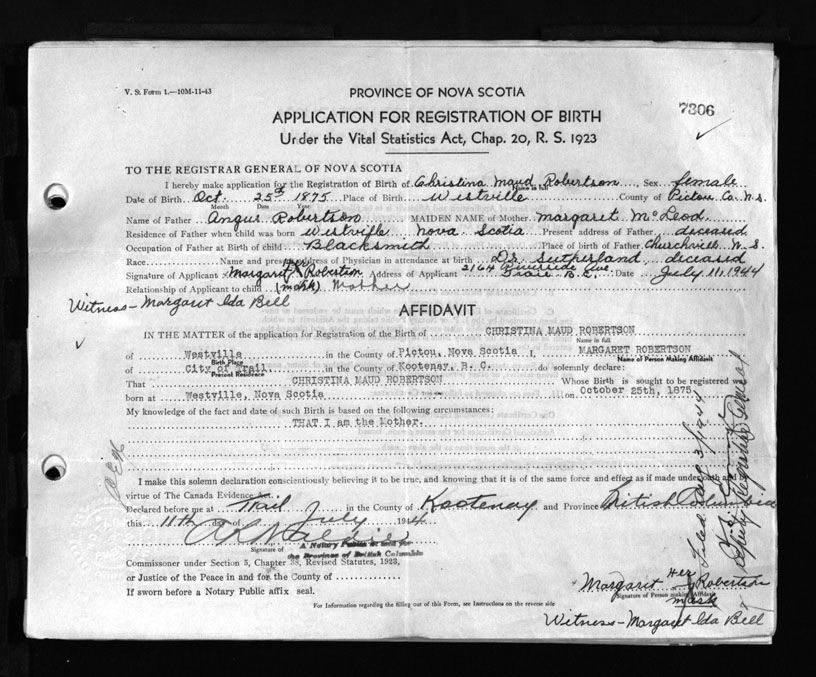 V. St. Form 1.—10M-11-43
PROVINCE OF NOVA SCOTIA
7306
APPLICATION FOR REGISTRATION OF BIRTH
Under the Vital Statistics Act, Chap. 20, R. S. 1923
TO THE REGISTRAR GENERAL OF NOVA SCOTIA
I hereby make application for the Registration of Birth of Christina Maud Robertson, Sex female
Name in full
Date of Birth Oct. 25th 1875 Place of Birth Westville County of Pictou Co. N.S.
Month Date Year
Name of Father Angus Robertson MAIDEN NAME of Mother Margaret McLeod
Residence of Father when child was born Westville Nova Scotia Present address of Father deceased
Occupation of Father at Birth of child Blacksmith Place of birth of Father Churchville N.S.
Race Name and present address of Physician in attendance at birth Dr. Sutherland deceased
Signature of Applicant Margaret Her X Robertson Address of Applicant 2164 Riverside Ave. Trail B.C. Date July 11, 1944
Relationship of Applicant to child (mark) Mother
Witness - Margaret Ida Bell
AFFIDAVIT
IN THE MATTER of the application for Registration of the Birth of CHRISTINA MAUD ROBERTSON
Name in full
of Westville in the County of Pictou, Nova Scotia I, MARGARET ROBERTSON
Birth Place Name of Person Making Affidavit
of City of Trail in the County of Kootenay, B. C. do solemnly declare:
Present Residence
That CHRISTINA MAUD ROBERTSON Whose Birth is sought to be registered was
born at Westville, Nova Scotia on October 25th, 1875
My knowledge of the fact and date of such Birth is based on the following circumstances:
THAT I am the Mother.
I make this solemn declaration conscientiously believing it to be true, and knowing that it is of the same force and effect as if made under oath and by
virtue of The Canada Evidence Act.
Declared before me at Trail in the County of Kootenay and Province British Columbia
this 11th day of July 1944
Signature of A Notary Public in and for
the Province of British Columbia
Commissioner under Section 5, Chapter 38, Revised Statutes, 1923,
or Justice of the Peace in and for the County of
If sworn before a Notary Public affix seal.
Margaret Her X Robertson
Signature of Person making Affidavit
mark
For Information regarding the filling out of this Form, see Instructions on the reverse side
Witness - Margaret Ida Bell
Filed Aug 3/1944
Deputy Registrar General